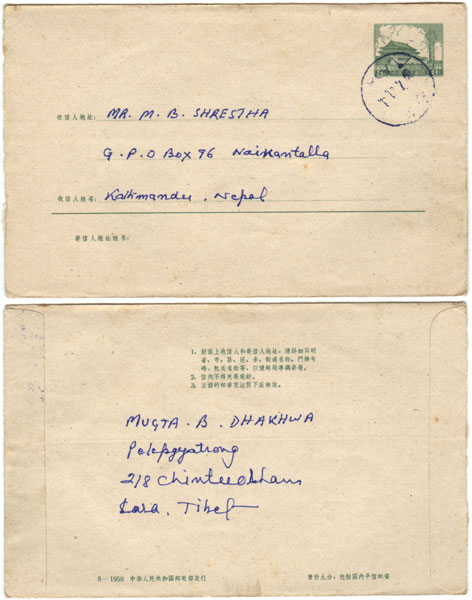 收信人地址:
MR. M. B. SHRESTHA
G.P.O BOX 96 Naikantalla
收信人姓名:
Kathmandu, Nepal
寄信人地址姓名:
1. 封面上收信人和寄信人地址,請詳細写明
省、市、县、区、乡、街道名称、門牌号
碼、机关名称等,以便邮局準确投递。
2. 信內不得夾寄紙鈔。
3. 正面的邮資凭証剪下后無效。
MUGTA. B. DHAKHWA
2/8
Tibet
8—1959 中华人民共和国邮电部发行
售价九分:包括国内平信邮資